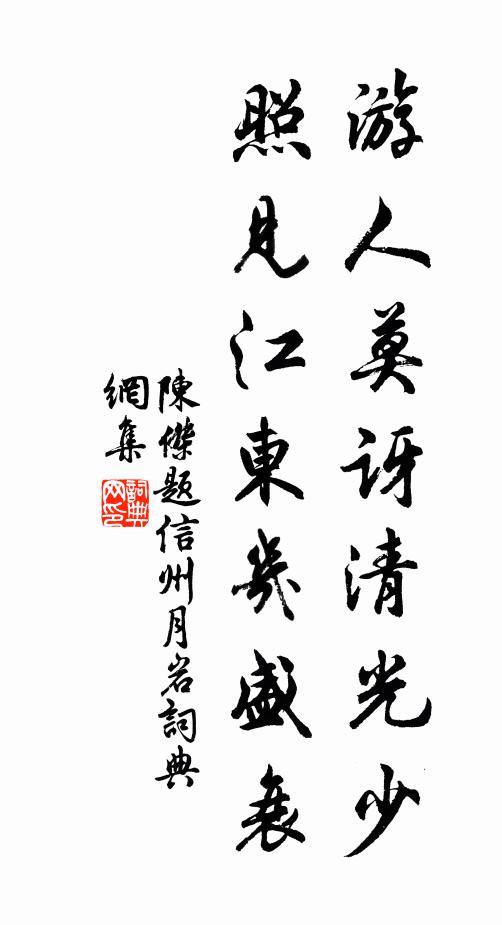 游人莫讶清光少
照見江東幾盛衰
陳傑題信州月岩詞典
網集
詞典網印